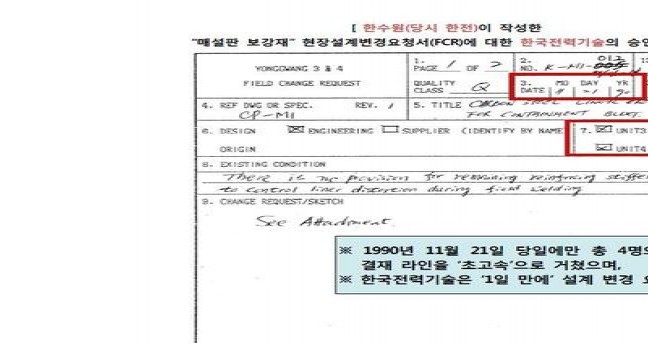 [ 한수원(당시 한전)이 작성한
"매설판 보강재" 현장설계변경요청서(FCR)에 대한 한국전력기술의 승인
YONGGWANG 3 & 4
FIELD CHANGE REQUEST
1. PAGE 1 OF 2
2. NO. K-MI-
QUALITY CLASS Q
3. DATE MO DAY YR
4. REF DWG OR SPEC. REV. 1
CP-M1
5. TITLE CARBON STEEL LINER
FOR CONTAINMENT BLDG.
6. DESIGN ORIGIN ☒ ENGINEERING ☐ SUPPLIER (IDENTIFY BY NAME
7. ☒ UNIT3
☒ UNIT4
8. EXISTING CONDITION
There is no provision for remaining reinforcing
to control liner distortion during field welding
9. CHANGE REQUEST/SKETCH
See Attachment.
※ 1990년 11월 21일 당일에만 총 4명의
결재 라인을 '초고속'으로 거쳤으며,
※ 한국전력기술은 '1일 만에' 설계 변경